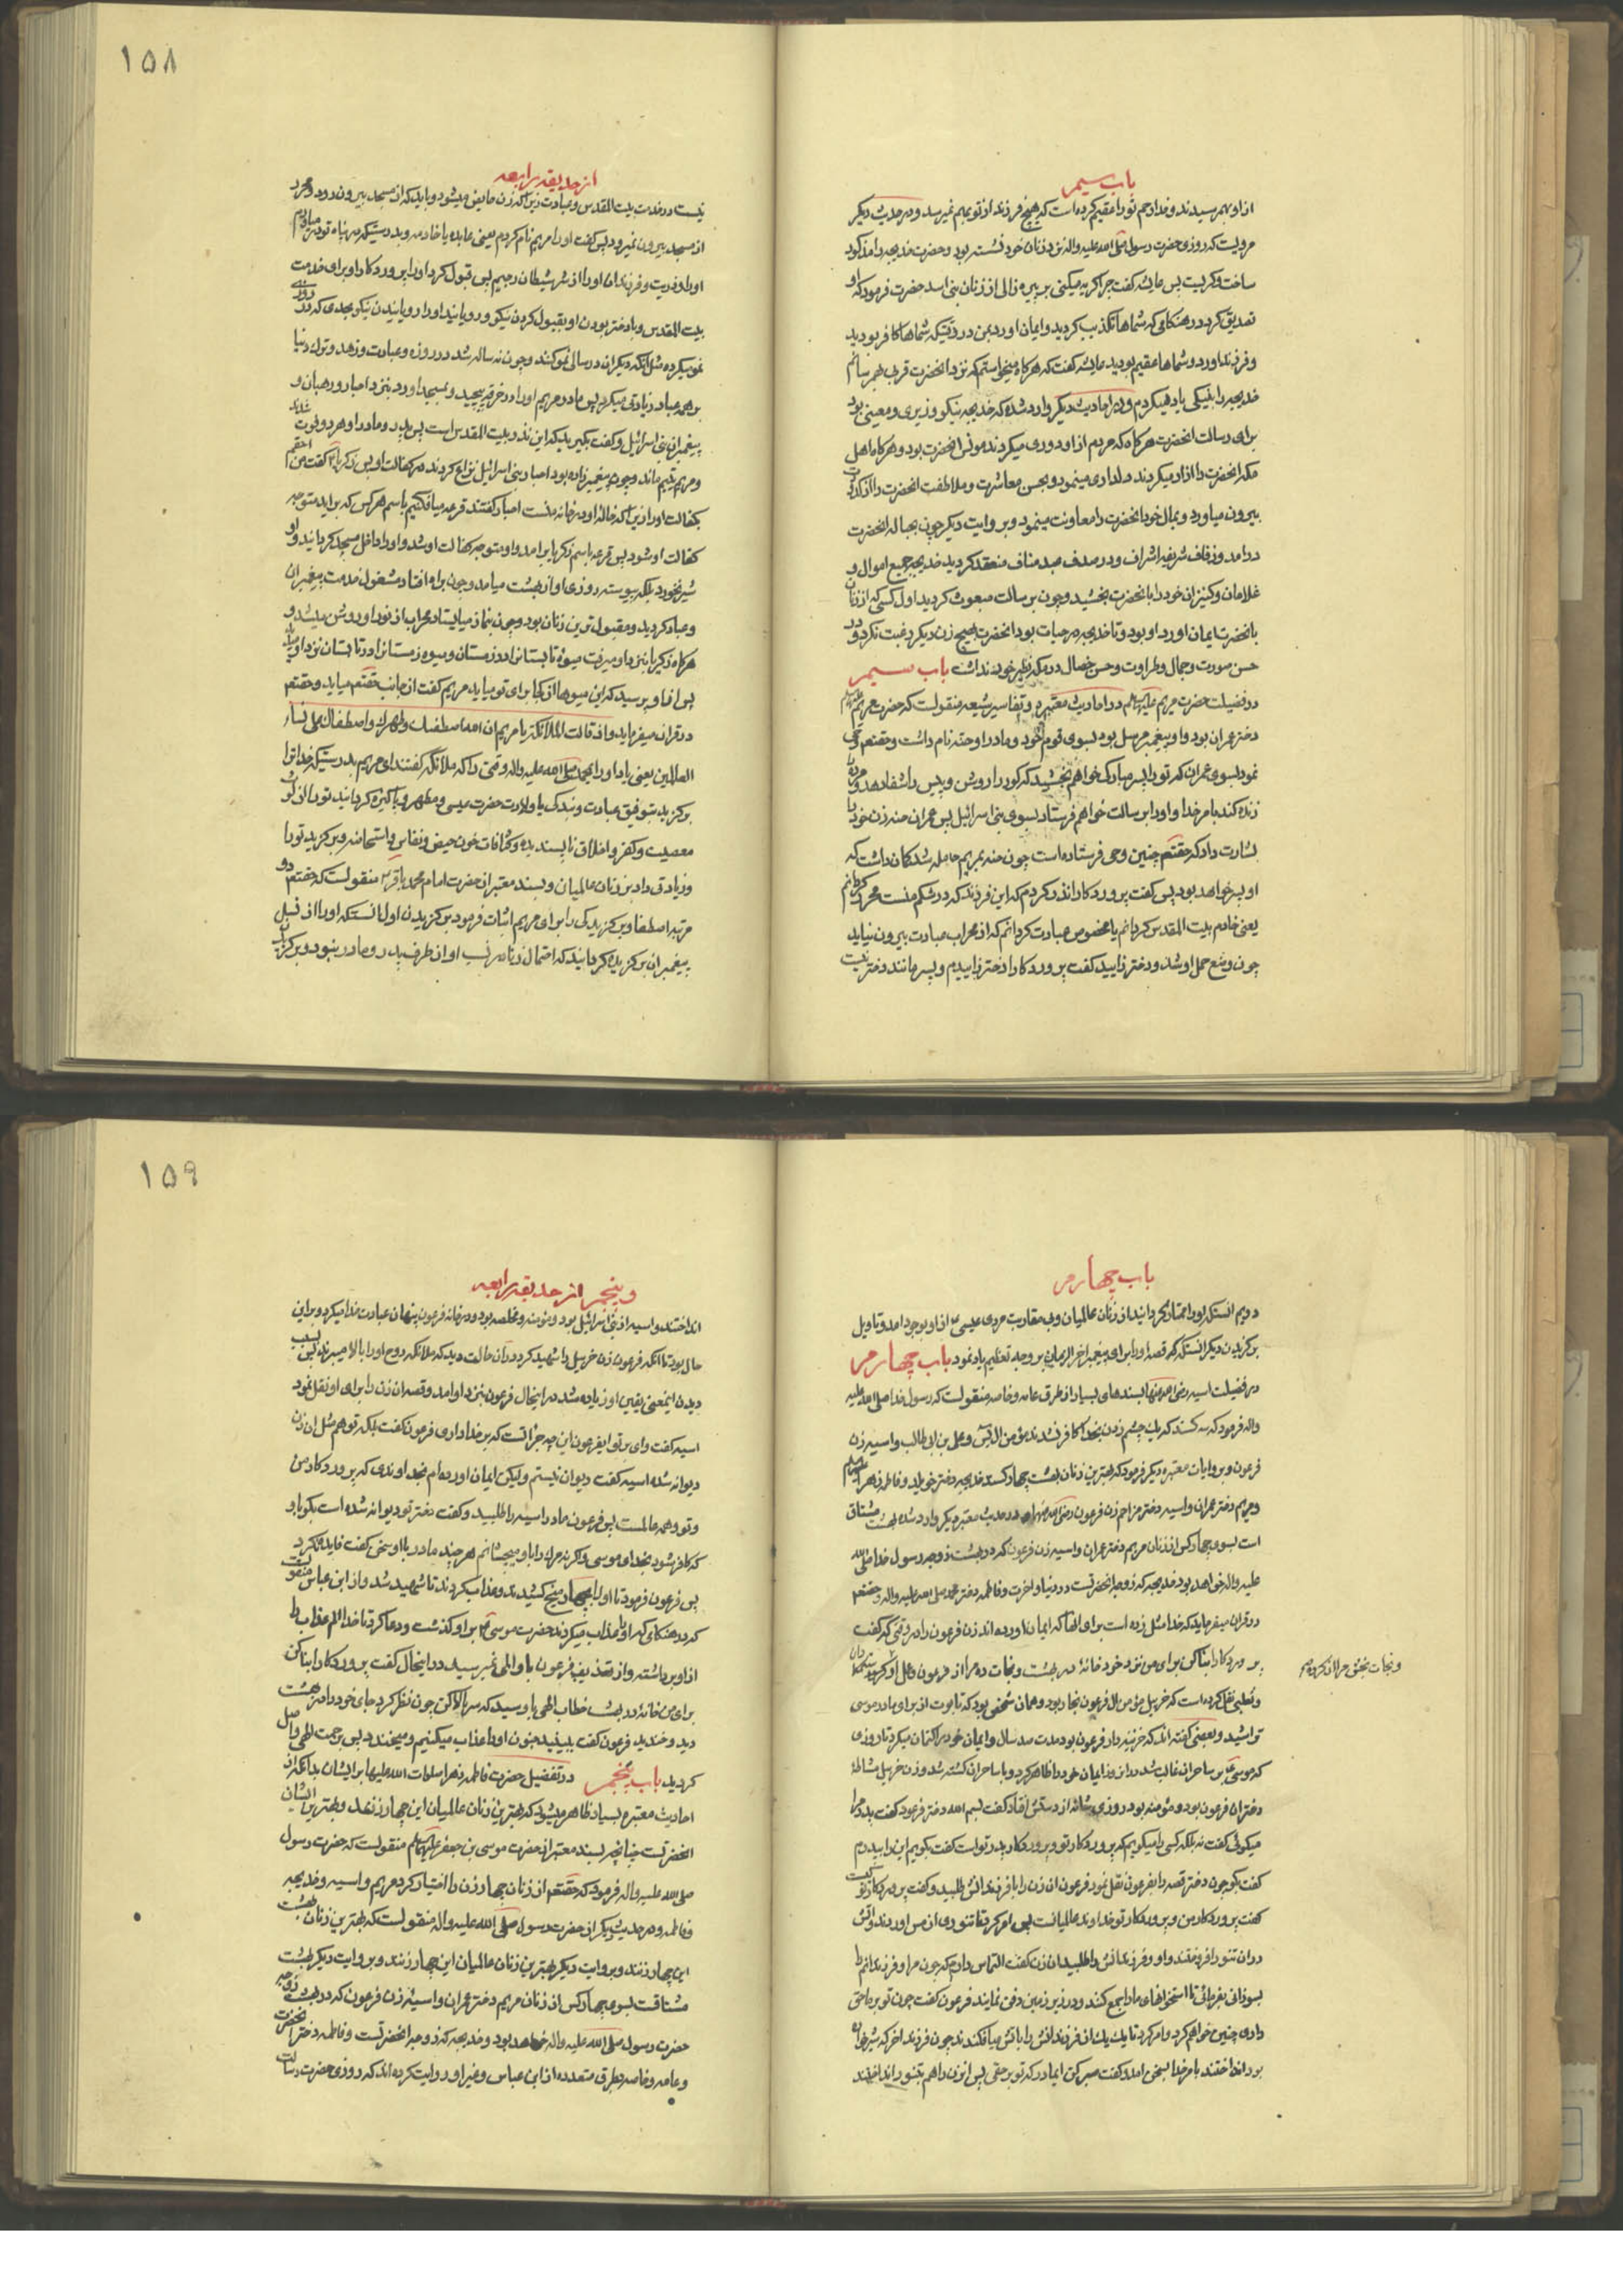 باب سیم
از او بهم رسیدند و خدا رحم تو را عقیم کرده است که هیچ فرزند از تو بهم نمیرسد و در حدیث دیگر
مرویست که روزی حضرت رسول صلی الله علیه واله نزد زنان خود نشسته بود و حضرت خدیجه را مذکور
ساخت و گریست پس عایشه گفت چرا گریه میکنی بر پیره زالی از زنان بنی اسد حضرت فرمود که او
تصدیق کرد در هنگامی که شماها تکذیب کردید و ایمان اورد بمن در وقتیکه شماها کافر بودید
و فرزند اورد و شماها عقیم بودید عایشه گفت که هرگاه میخواستم که نزد انحضرت قرب بهم رسانم
خدیجه را به نیکی یاد میکردم و در احادیث دیگر وارد شده که خدیجه نیکو وزیری و معینی بود
برای رسالت انحضرت هرگاه که مردم از او دوری میکردند مونس انحضرت بود و هرگاه اهل
مکه انحضرت را ازار میکردند دلداری مینمود و بحسن معاشرت و ملاطفت انحضرت را از کدورت
بیرون میاورد و بمال خود انحضرت را معاونت مینمود و بروایت دیگر چون بحباله انحضرت
درامد و زفاف شریفه اشراف و در صدف عبد مناف منعقد کردید خدیجه جمیع اموال و
غلامان و کنیزان خود را بانحضرت بخشید و چون برسالت مبعوث کردید اول کسی که از زنان
بانحضرت ایمان اورد او بود و تا خدیجه در حیات بود انحضرت بهیچ زن دیگر رغبت نکرد و در
حسن صورت و جمال و طراوت و حسن خصال در مکه نظیر خود نداشت باب سیم
در فضیلت حضرت مریم علیها السلام در احادیث معتبره و تفاسیر شیعه منقولست که حضرت مریم
دختر عمران بود و او پیغمبر مرسل بود بسوی قوم خود و مادر او حنه نام داشت و حقتعالی وحی
نمود بسوی عمران که تو را پسر مبارک خواهم بخشید که کور را روشن و پیس را شفا دهد و مرده را
زنده کند بامر خدا و او را برسالت خواهم فرستاد بسوی بنی اسرائیل پس عمران حنه زن خود را
بشارت داد که حقتعم چنین وحی فرستاده است چون حنه بمریم حامله شد گمان داشت که
او پسر خواهد بود پس گفت پروردگارا نذر کردم که این فرزند که در شکم منست محرر گردانم
یعنی خادم بیت المقدس کردانم یا مخصوص عبادت کردانم که از محراب عبادت بیرون نیاید
چون وضع حمل او شد و دختر زایید گفت پروردگارا دختر زاییدم و پسر مانند دختر نیست
۱۵۸
از حدیقه رابعه
نیست در خدمت بیت المقدس و عبادت زیرا که زن حایض میشود و باید که از مسجد بیرون رود و محرر
از مسجد بیرون نمیرود پس گفت او را مریم نام کردم یعنی عابده یا خادمه و بدرستیکه در پناه تو در میاورم
او را و ذریت و فرزندان او را از شر شیطان رجیم پس قبول کرد او را پروردگار او برای خدمت
بیت المقدس و با دختر بودن او بقبول کردن نیکو و رویانید او را رویانیدن نیکو بحدی که در روزی
نمو میکرد مثل انکه دیگران در سالی نمو کنند و چون نه ساله شد در روزه و عبادت و زهد و ترک دنیا
بر همه عباد زیادتی میکرد پس مادر مریم او را در خرقه پیچید و بمسجد اورد بنزد احبار و رهبان و
پیغمبران بنی اسرائیل و گفت بگیرید که این نذر بیت المقدس است پس پدر و مادر او هر دو فوت شدند
و مریم یتیم ماند و چون پیغمبرزاده بود احبار بنی اسرائیل نزاع کردند در کفالت او پس زکریا گفت من احقم
بکفالت او زیرا که خاله او در خانه منست احبار گفتند قرعه میافکنیم باسم هر کس که براید متوجه
کفالت او شود پس قرعه باسم زکریا برامد و او متوجه کفالت او شد و او را داخل مسجد کردانید و او
شیر نخورد بلکه پیوسته روزی او از بهشت میامد و چون براه افتاد مشغول خدمت پیغمبران
و عباد کردید و مقبول ترین زنان بود و چون بنماز میایستاد محراب از نور او روشن میشد و
هرگاه زکریا بنزد او میرفت میوه تابستانرا در زمستان و میوه زمستانرا در تابستان نزد او میدید
پس از او پرسید که این میوها از کجا برای تو میاید مریم گفت از جانب حقتعم میاید و حقتعم
در قران میفرماید و اذ قالت الملائکة یا مریم ان الله اصطفیک وطهرک واصطفاک علی نساء
العالمین یعنی یاد اور ای محمد صلی الله علیه واله وقتی را که ملائکه گفتند ای مریم بدرستیکه خدا ترا
برگزید بتوفیق عبادت و بندگی یا ولادت حضرت عیسی و مطهر و پاکیزه گردانید تو را از لوث
معصیت و کفر و اخلاق ناپسندیده و کثافات خون حیض و نفاس و استحاضه و برگزید تو را
و زیادتی داد بر زنان عالمیان و بسند معتبر از حضرت امام محمد باقر منقولست که حقتعم دو
مرتبه اصطفا و برگزیدگی را برای مریم اثبات فرمود برگزیدن اول انستکه او را از نسل
پیغمبران برگزیده گردانید که احتمال زنا در نسب او از طرف پدر و مادر نبود و برگزیدن
باب چهارم
دویم انستکه او را ممتاز گردانید از زنان عالمیان و بی مقاربت مردی عیسی از او بوجود امد و تاویل
برگزیدن دیگر انستکه قصه او را برای پیغمبر اخر الزمان بر وجه تعظیم یاد نمود باب چهارم
در فضیلت اسیه رضی الله عنها بسندهای بسیار از طرق عامه و خاصه منقولست که رسول خدا صلی الله علیه
واله فرمود که سه کسند که یک چشم زدن بخدا کافر نشدند مؤمن ال یس و علی بن ابی طالب و اسیه زن
فرعون و بروایات معتبره دیگر فرمود که بهترین زنان بهشت چهار کسند خدیجه دختر خویلد و فاطمه زهرا
و مریم دختر عمران و اسیه دختر مزاحم زن فرعون در حدیث معتبر دیگر وارد شده بهشت مشتاق
است بسوی چهار کس از زنان مریم دختر عمران و اسیه زن فرعون که در بهشت زوجه رسول خدا صلی الله
علیه واله خواهد بود خدیجه که زوجه انحضرتست در دنیا و اخرت و فاطمه دختر محمد صلی الله علیه واله و حقتعم
در قران میفرماید که خدا مثل زده است برای انها که ایمان اورده اند زن فرعون را در وقتی که گفت
پروردگارا بنا کن برای من نزد خود خانه در بهشت و نجات ده مرا از فرعون و عمل او
و نجات بخش مرا از گروه
و ثعلبی نقل کرده است که خربیل مؤمن ال فرعون نجار بود و همان شخص بود که تابوت از برای مادر موسی
تراشید و بعضی گفته اند که خزینه دار فرعون بود مدت صد سال و ایمان خود را کتمان میکرد تا روزی
که موسی بر ساحران غالب شد در انروز ایمان خود را ظاهر کرد و با ساحران کشته شد و زن خربیل مشاطه
دختران فرعون بود و مؤمنه بود روزی شانه از دستش افتاد گفت بسم الله دختر فرعون گفت پدر مرا
میگوئی گفت نه بلکه کسی را میگویم که پروردگار تو و پروردگار پدر تو است گفت بگویم این را بپدرم
گفت بگو چون دختر قصه را بفرعون نقل نمود فرعون ان زن را با فرزندانش طلبید و گفت پروردگار تو کیست
گفت پروردگار من و پروردگار تو خداوند عالمیانست پس امر کرد تا تنوری از مس اوردند و اتش
در ان تنور افروختند و او و فرزندانش را طلبید ان زن گفت التماس دارم که چون مرا و فرزندانم را
بسوزانی بفرمائی تا استخوانهای ما را جمع کنند و در زیر زمین دفن نمایند فرعون گفت چون تو بر ما حق
داری چنین خواهم کرد و امر کرد تا یک یک از فرزندانش را باتش میافکندند چون فرزند اخر که شیرخواره
بود انداختند بامر خدا بسخن امد و گفت صبر کن ایمادر که تو بر حقی پس انزن را هم بتنور انداختند
۱۵۹
و پنجم از حدیقه رابعه
انداختند و اسیه از بنی اسرائیل بود و مؤمنه و مخلصه بود و در خانه فرعون پنهان عبادت خدا میکرد و بر این
حال بود تا انکه فرعون زن خربیل را شهید کرد در ان حالت دید که ملائکه روح او را بالا میبرند بسبب
دیدن اینمعنی یقین او زیاده شد در اینحال فرعون بنزد او امد و قصه ان زن را برای او نقل نمود
اسیه گفت وای بر تو ایفرعون این چه جراتست که بر خدا داری فرعون گفت بلکه تو هم مثل ان زن
دیوانه شده اسیه گفت دیوانه نیستم ولیکن ایمان اورده ام بخداوندی که پروردگار من
و تو و همه عالمست پس فرعون مادر اسیه را طلبید و گفت دختر تو دیوانه شده است بگو باو
که کافر شود بخدای موسی و گرنه مرگ را باو میچشانم هر چند مادر با او سخن گفت فایده نکرد
پس فرعون فرمود تا او را بچهار میخ کشیدند و عذاب میکردند تا شهید شد و از ابن عباس منقولست
که در هنگامی که او را عذاب میکردند حضرت موسی بر او گذشت و دعا کرد تا خدا الم عذاب را
از او برداشته و از تعذیب فرعون باو المی نمیرسید در اینحال گفت پروردگارا بنا کن
برای من خانه در بهشت خطاب الهی باو رسید که سر بالا کن چون نظر کرد جای خود را در بهشت
دید و خندید فرعون گفت ببینید جنون او را عذاب میکنیم و میخندد پس برحمت الهی واصل
گردید باب پنجم در تفضیل حضرت فاطمه زهرا صلوات الله علیها بر ایشان بدانکه از
احادیث معتبره بسیار ظاهر میشود که بهترین زنان عالمیان این چهار زنند و بهترین ایشان
انحضرتست چنانچه بسند معتبر از حضرت موسی بن جعفر علیهما السلام منقولست که حضرت رسول
صلی الله علیه واله فرمود که حقتعم از زنان چهار زن را اختیار کرد مریم و اسیه و خدیجه
و فاطمه و در حدیث دیگر از حضرت رسول صلی الله علیه واله منقولست که بهترین زنان بهشت
این چهار زنند و بروایت دیگر بهترین زنان عالمیان این چهار زنند و بروایت دیگر بهشت
مشتاقست بسوی چهار کس از زنان مریم دختر عمران و اسیه زن فرعون که در بهشت زوجه
حضرت رسول صلی الله علیه واله خواهد بود و خدیجه که زوجه انحضرتست و فاطمه دختر انحضرت
و عامه و خاصه بطرق متعدده از ابن عباس و غیر او روایت کرده اند که روزی حضرت رسالت